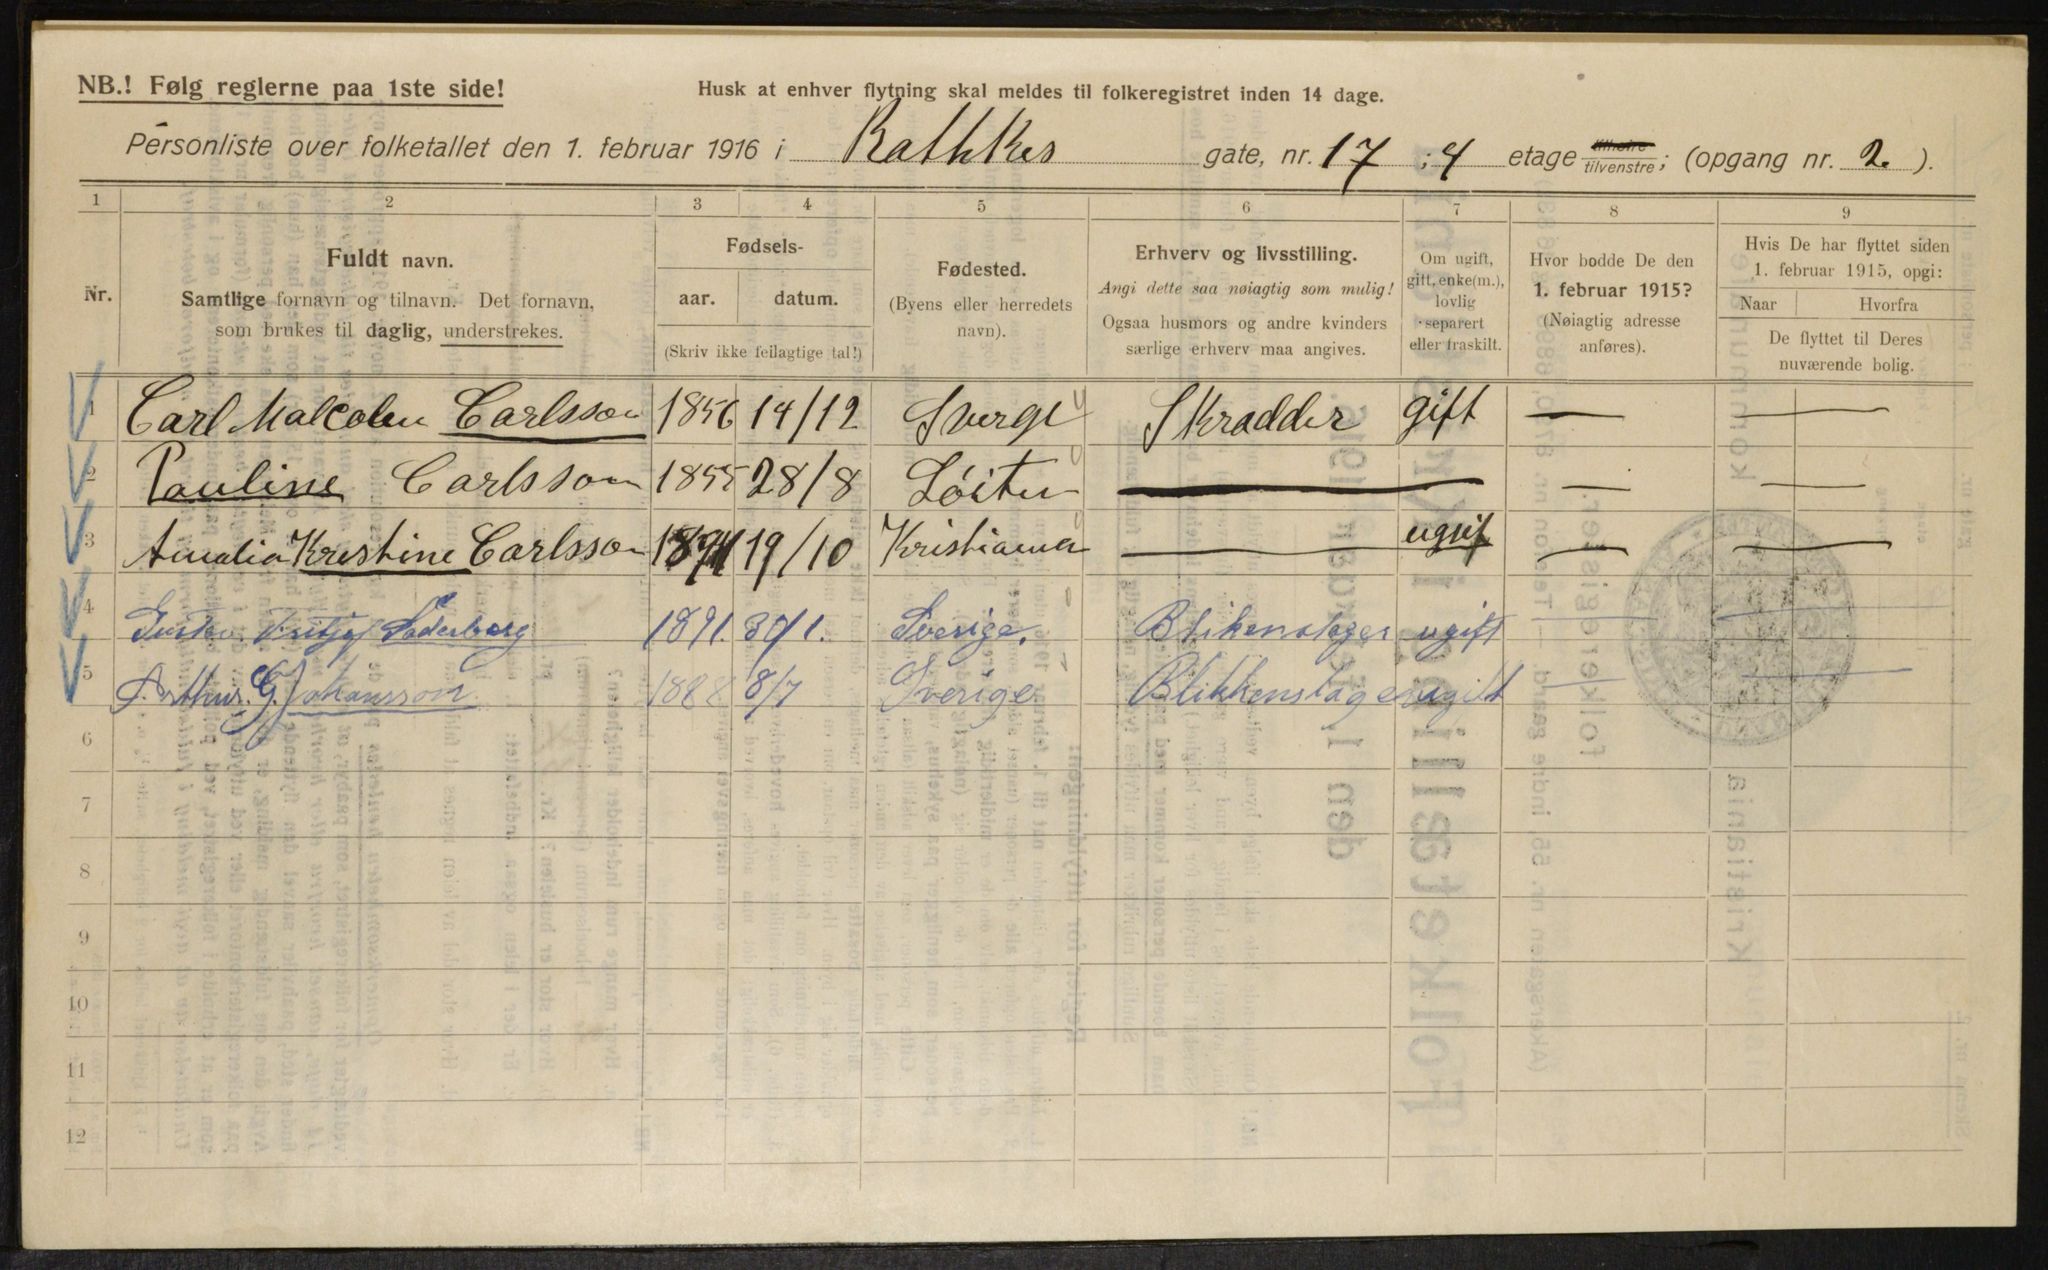 NB.! Følg reglerne paa 1ste side!
Husk at enhver flytning skal meldes til folkeregistret inden 14 dage.
Personliste over folketallet den 1. februar 1916 i Rathkes gate, nr. 17 ; 4 etage tilhøire tilvenstre ; (opgang nr. 2. ).
1 2 3 4 5 6 7 8 9
Nr.
Fuldt navn.
Samtlige fornavn og tilnavn. Det fornavn,
som brukes til daglig, understrekes.
Fødsels-
aar. datum.
(Skriv ikke feilagtige tal!)
Fødested.
(Byens eller herredets
navn).
Erhverv og livsstilling.
Angi dette saa nøiagtig som mulig!
Ogsaa husmors og andre kvinders
særlige erhverv maa angives.
Om ugift,
gift, enke(m.),
lovlig
separert
eller fraskilt.
Hvor bodde De den
1. februar 1915?
(Nøiagtig adresse
anføres).
Hvis De har flyttet siden
1. februar 1915, opgi:
Naar Hvorfra
De flyttet til Deres
nuværende bolig.
1 Carl Malcolm Carlsson 1856 14/12 Sverge Skradder gift — —
2 Pauline Carlsson 1855 28/8 Löiten — — —
3 Amalia Kristine Carlsson 19/10 Kristiania — ugift — —
4 Gustav Fritjof Söderberg 1891. 30/1. Sverige. Blikenslager ugift — —
5 Arthur. G. Johansson 1888 8/7 Sverige Blikkenslager ugift — —
6
7
8
9
10
11
12